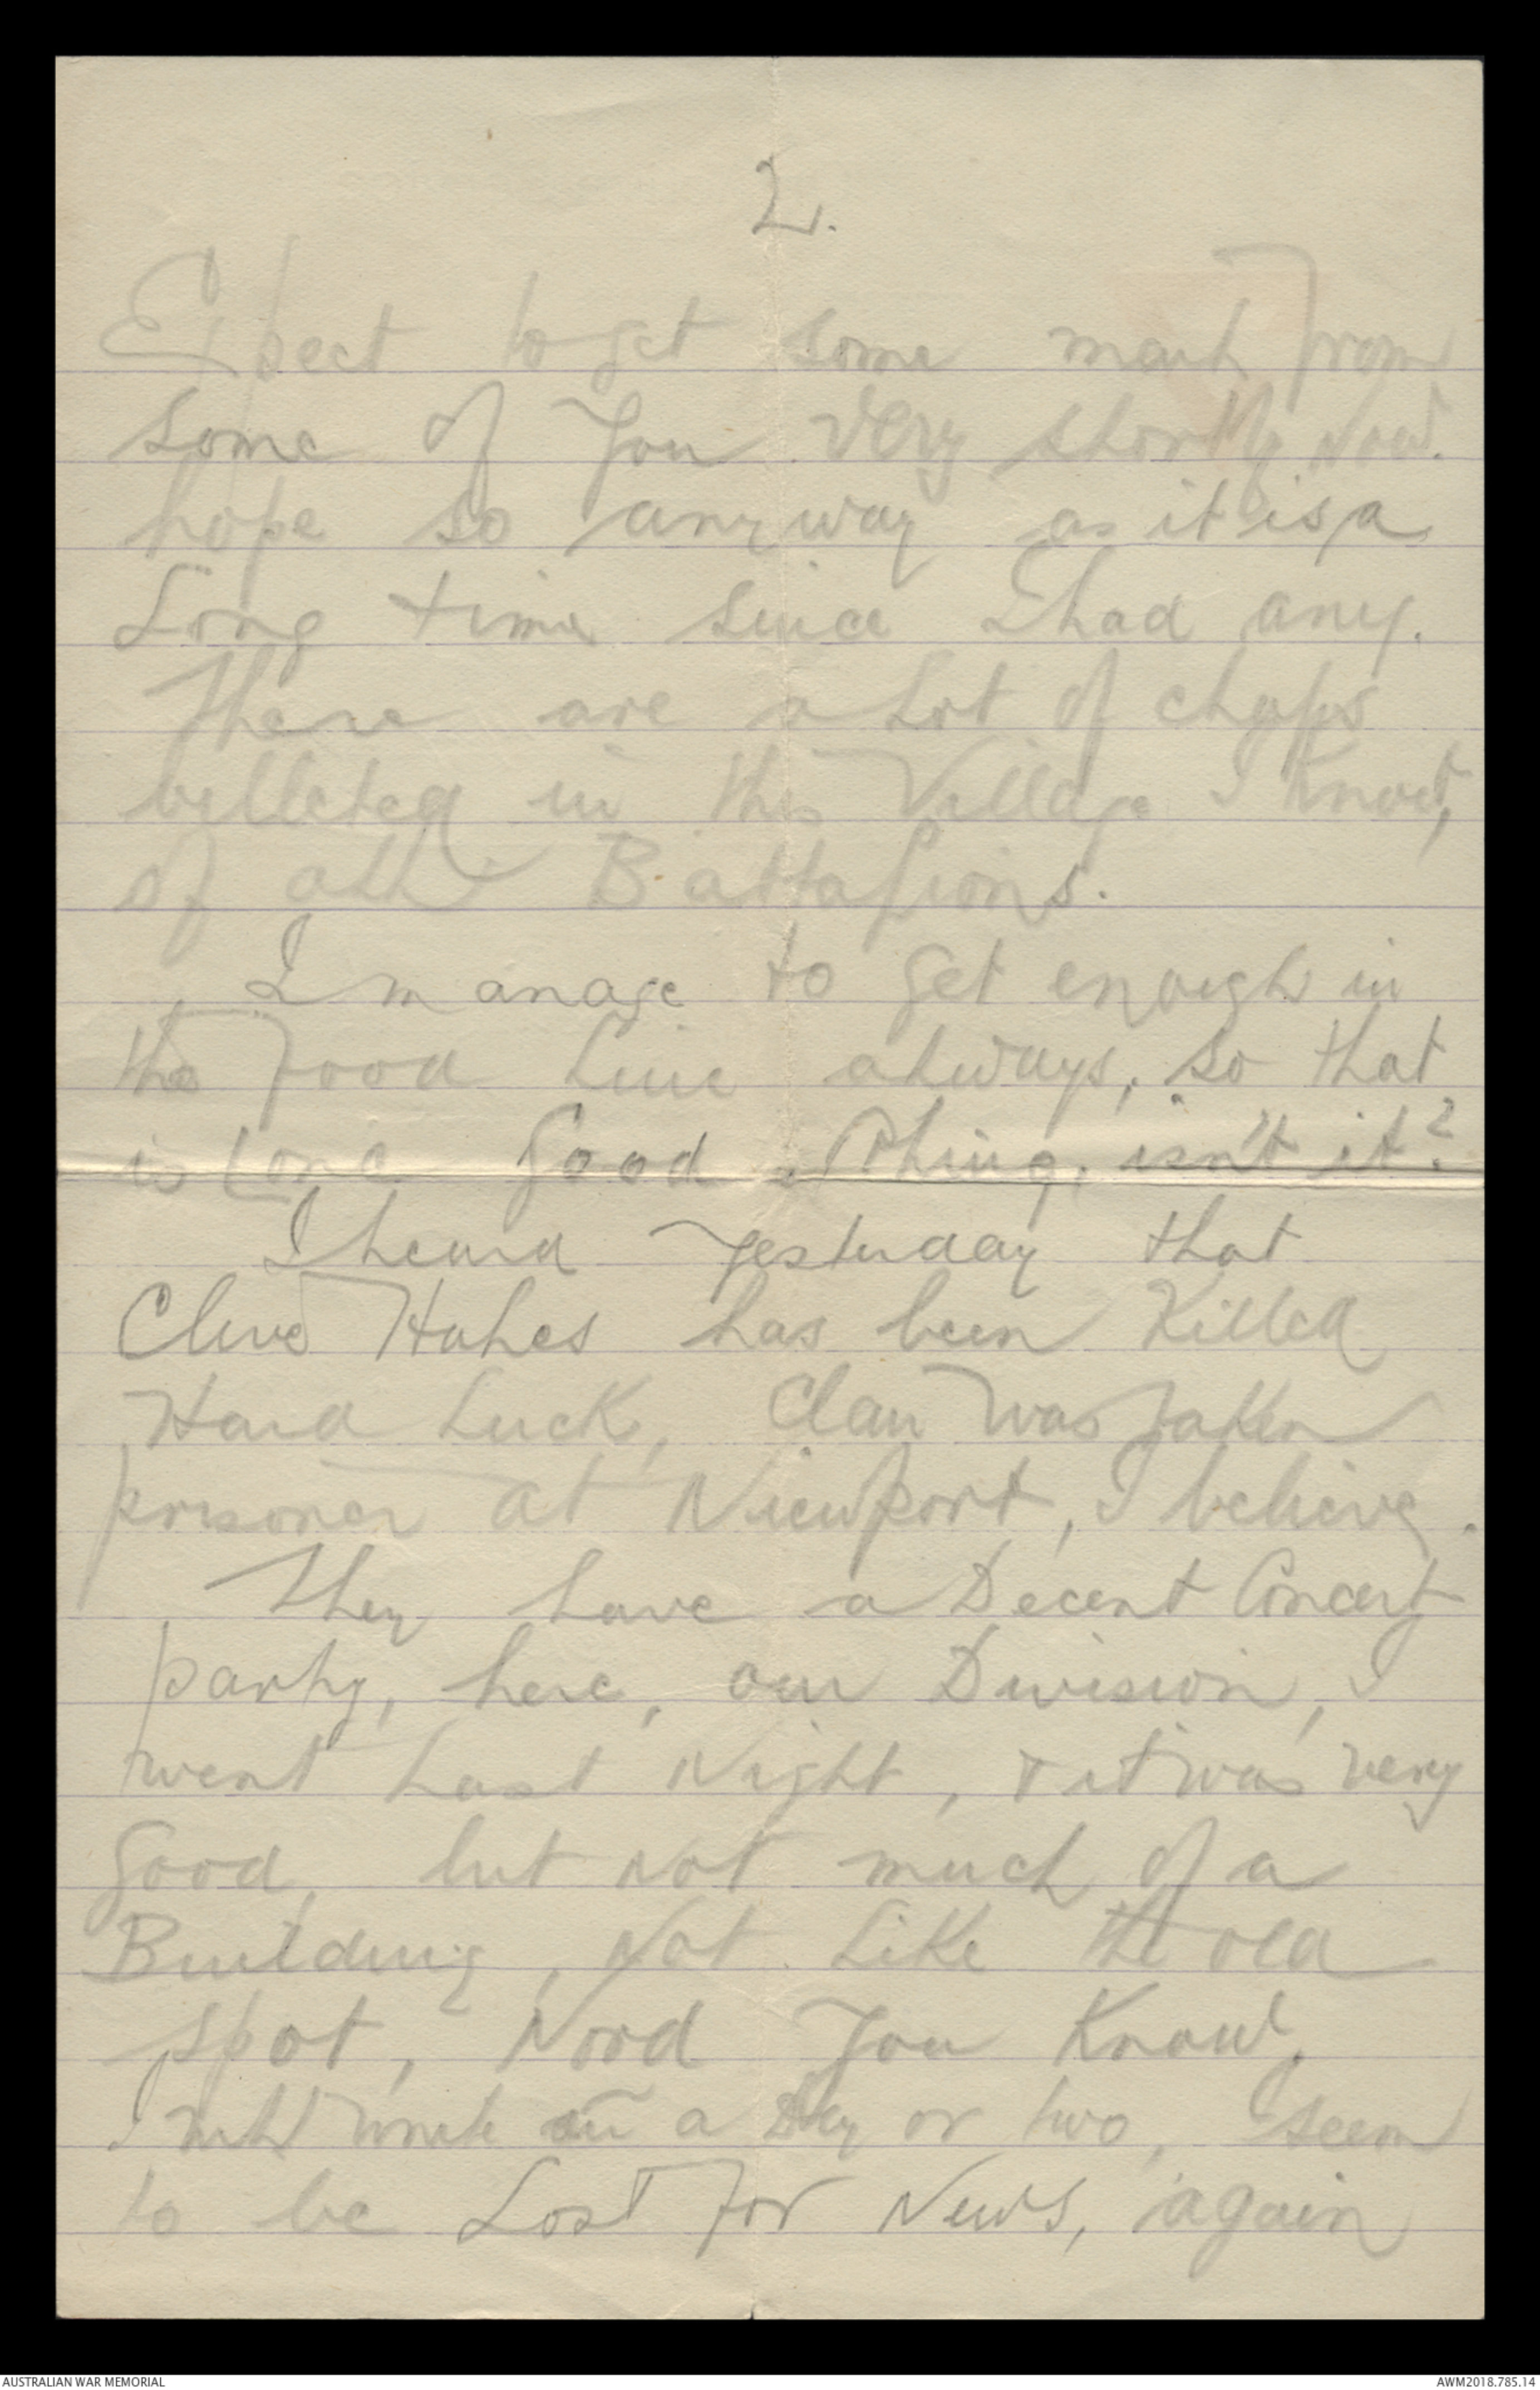 2.
Expect to get some from
some of You very shortly Now.
hope so anyway as it is a
Long time since I had any.
There are a Lot of chaps
billeted in this Village I Know,
of all Battalions.
I manage to get enough in
the food Line always, so that
is one Good Thing, isn't it?
I heard Yesterday that
Clive has been Killed
Hard Luck, was taken
prisoner at Niewport, I believe.
They have a Decent Concert
party, here, our Division, I
went Last Night, & it was very
Good, but Not much of a
Building, Not Like the old
spot, Nord You Know,
I will write in a Day or two, I seem
to be Lost for News, again
AUSTRALIAN WAR MEMORIAL
AWM2018.785.14